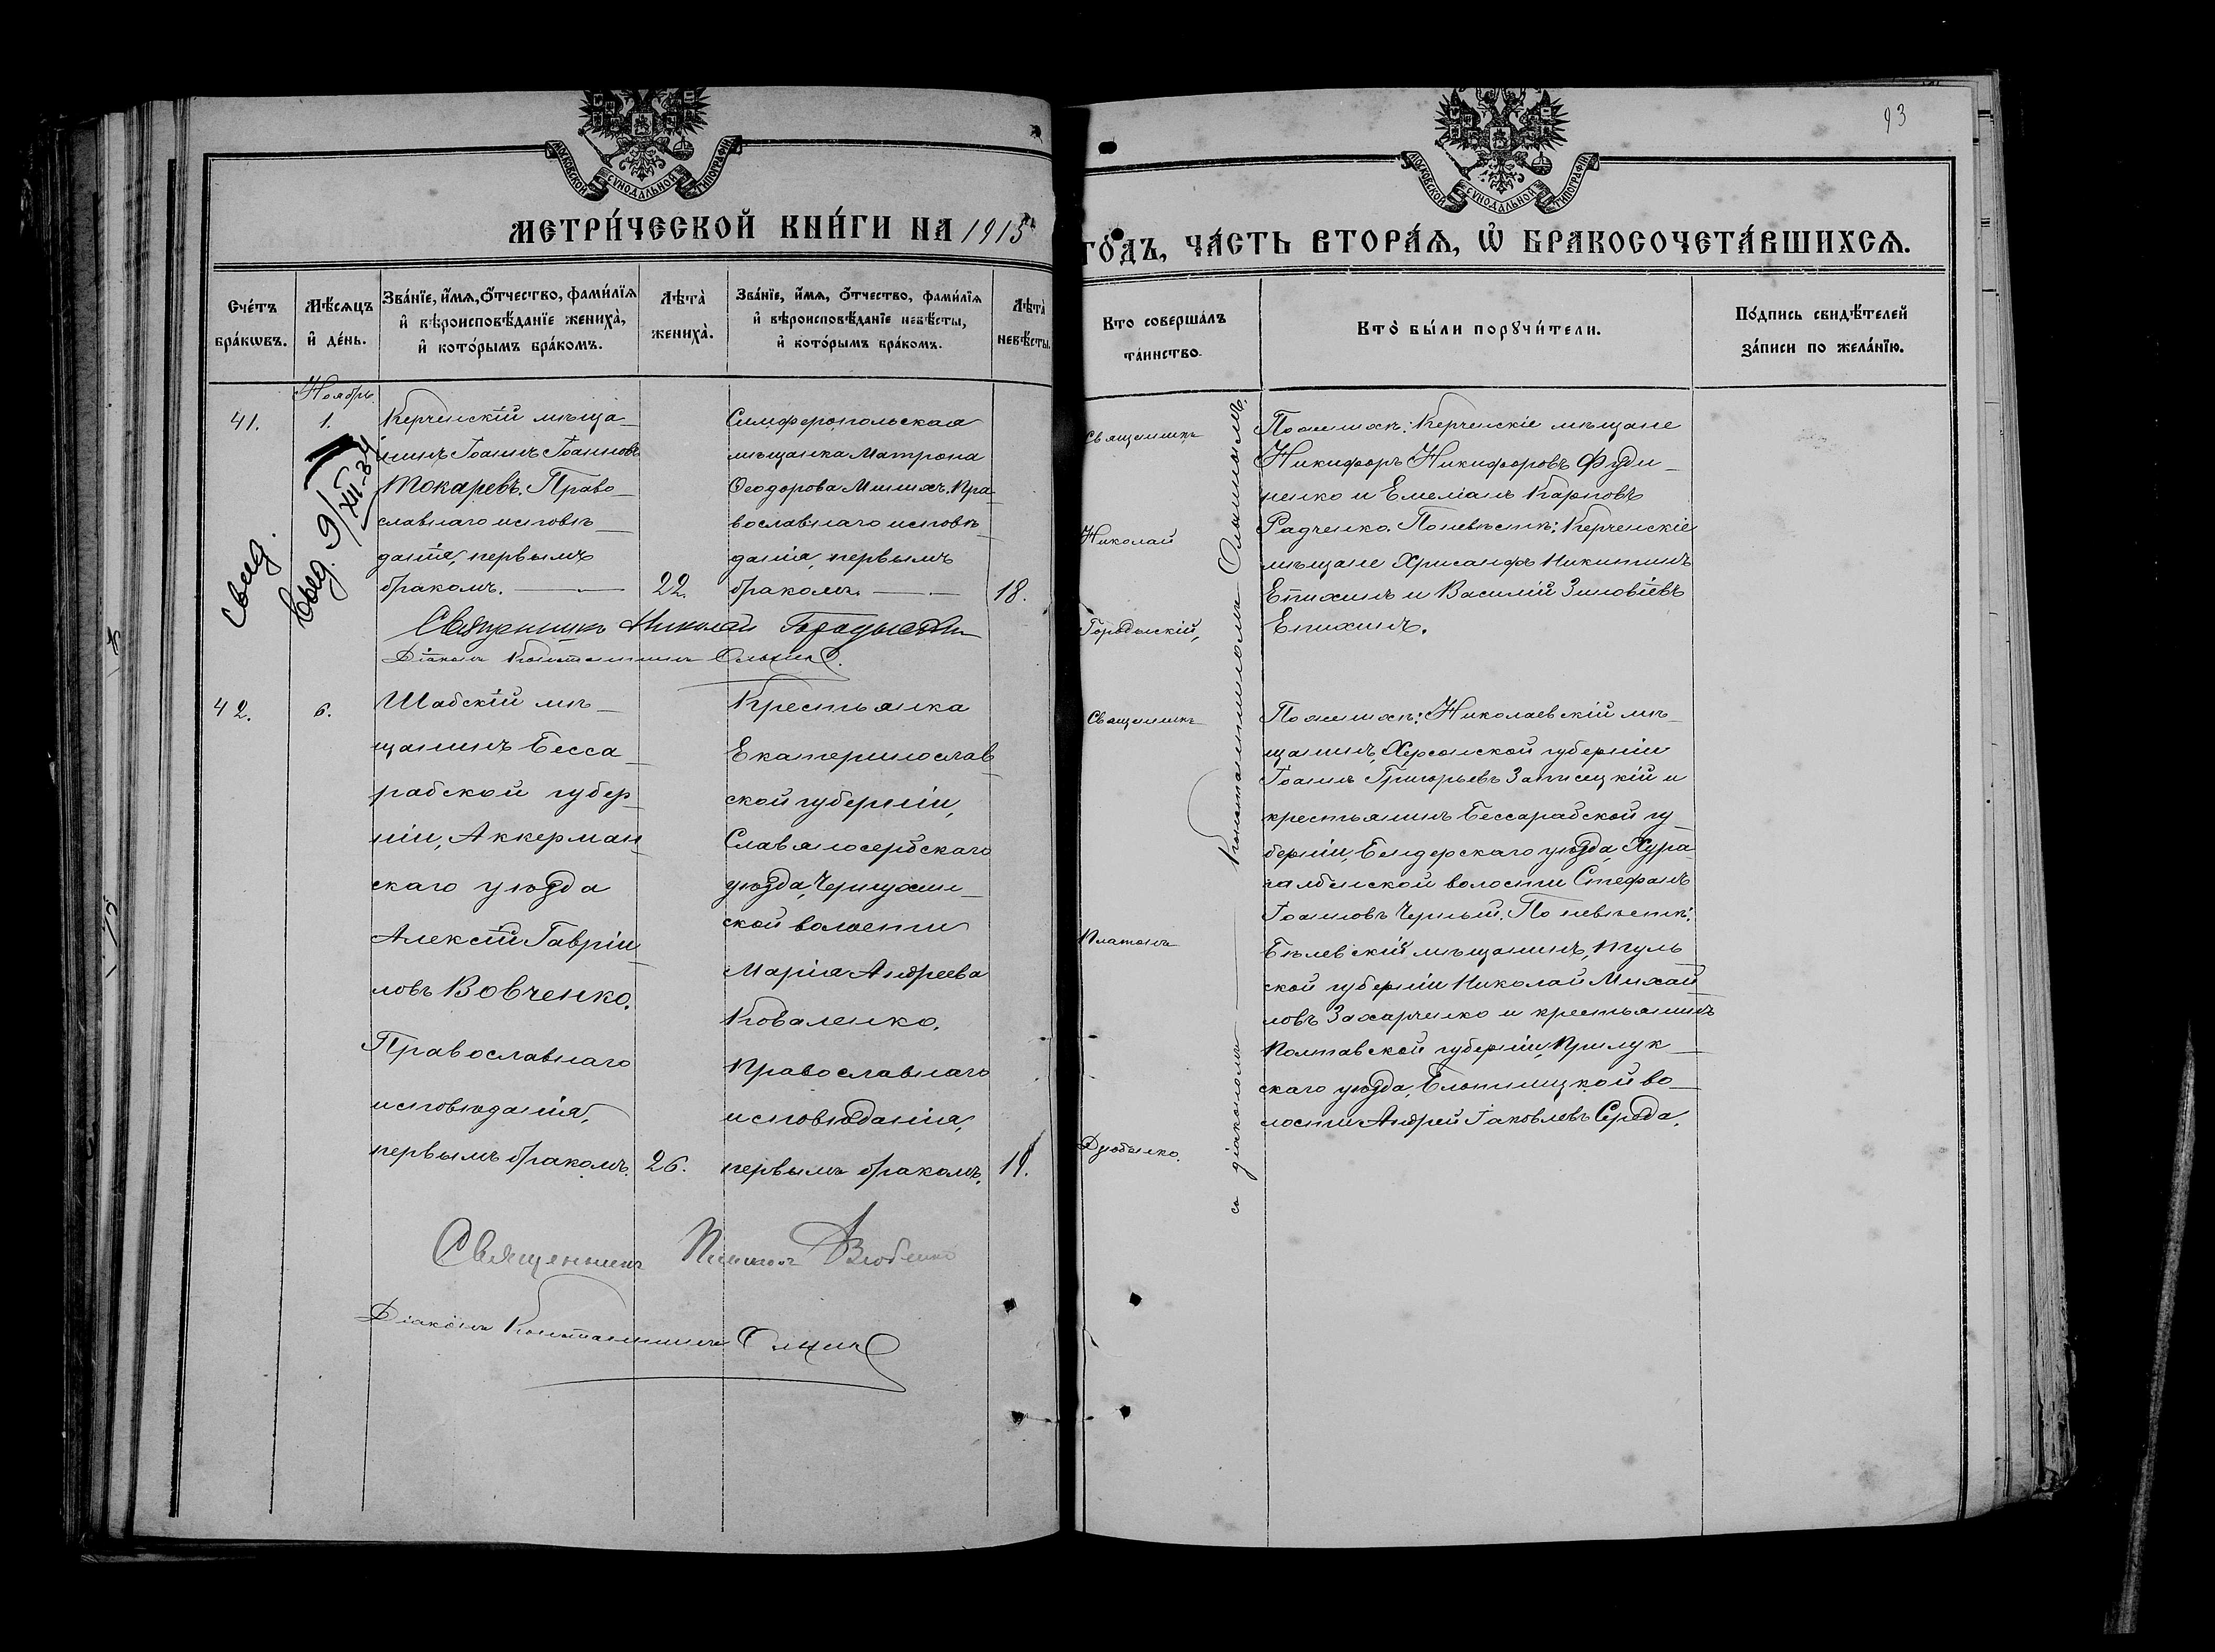 93
МОСКОВСКОЙ СУНОДАЛЬНОЙ ТИПОГРАФІИ
МОСКОВСКОЙ СУНОДАЛЬНОЙ ТИПОГРАФІИ
МЕТРИ́ЧЕСКОЙ КНИ́ГИ НА 1915
ГО́ДЪ, ЧА́СТЬ ВТОРА́Ѧ, Ѡ҆ БРАКОСОЧЕТА́ВШИХСѦ.
Сче́тъ
бра́кѡвъ.
Мѣ́сѧцъ
и҆ де́нь.
Зва́нїе, и҆́мѧ, ѻ҆́тчество, фами́лїѧ
и҆ вѣроисповѣ́данїе жениха̀,
и҆ кото́рымъ бра́комъ.
Лѣта̀
жениха̀.
Зва́нїе, и҆́мѧ, ѻ҆́тчество, фами́лїѧ
и҆ вѣроисповѣ́данїе невѣ́сты,
и҆ кото́рымъ бра́комъ.
Лѣта̀
невѣ́сты.
Кто соверша́лъ
та́инство.
Кто̀ бы́ли порꙋчи́тели.
По́дпись свидѣ́телей
за́писи по жела́нїю.
Ноябрь.
41.
1.
свид.
выд. 9/XII-34
Керченскій мѣща-
нинъ Іоаннъ Іоанновъ
Токаревъ. Право-
славнаго исповѣ-
данія, первымъ
бракомъ.
22.
Симферопольская
мѣщанка Матрона
Ѳеодорова Миших. Пра-
вославнаго исповѣ-
данія, первымъ
бракомъ.
18.
Священникъ
Николай
Городынскій,
По женихѣ: Керченскіе мѣщане
Никифоръ Никифоровъ Фуди-
ненко и Емеліанъ Карповъ
Радченко. По невѣстѣ: Керченскіе
мѣщане Хрисанфъ Никитинъ
Епихинъ и Василій Зиновіевъ
Епихинъ.
Священникъ Николай
Діаконъ Константинъ
42.
6.
Шабскій мѣ-
щанинъ Бесса-
рабской губер-
ніи, Аккерман-
скаго уѣзда
Алексій Гавріи-
ловъ Вовченко.
Православнаго
исповѣданія,
первымъ бракомъ.
26.
Крестьянка
Екатеринослав-
ской губерніи,
Славяносербскаго
уѣзда, Черкухин-
ской волости
Марія Андреева
Коваленко.
Православнаго
исповѣданія,
первымъ бракомъ.
19.
Священникъ
Платонъ
Дзюбенко.
съ діакономъ Константиномъ
По женихѣ: Николаевскій мѣ-
щанинъ, Херсонской губерніи
Іоаннъ Григорьевъ Записецкій и
крестьянинъ Бессарабской гу-
берніи, Бендерскаго уѣзда,
волости Стефанъ
Іоанновъ Черный. По невѣстѣ:
Бѣлевскій мѣщанинъ, Туль-
ской губерніи Николай Михаи-
ловъ Захарченко и крестьянинъ
Полтавской губерніи, Прилук-
скаго уѣзда, во-
лости Андрей Іаковлевъ Середа.
Священникъ Платонъ Дзюбенко
Діаконъ Константинъ